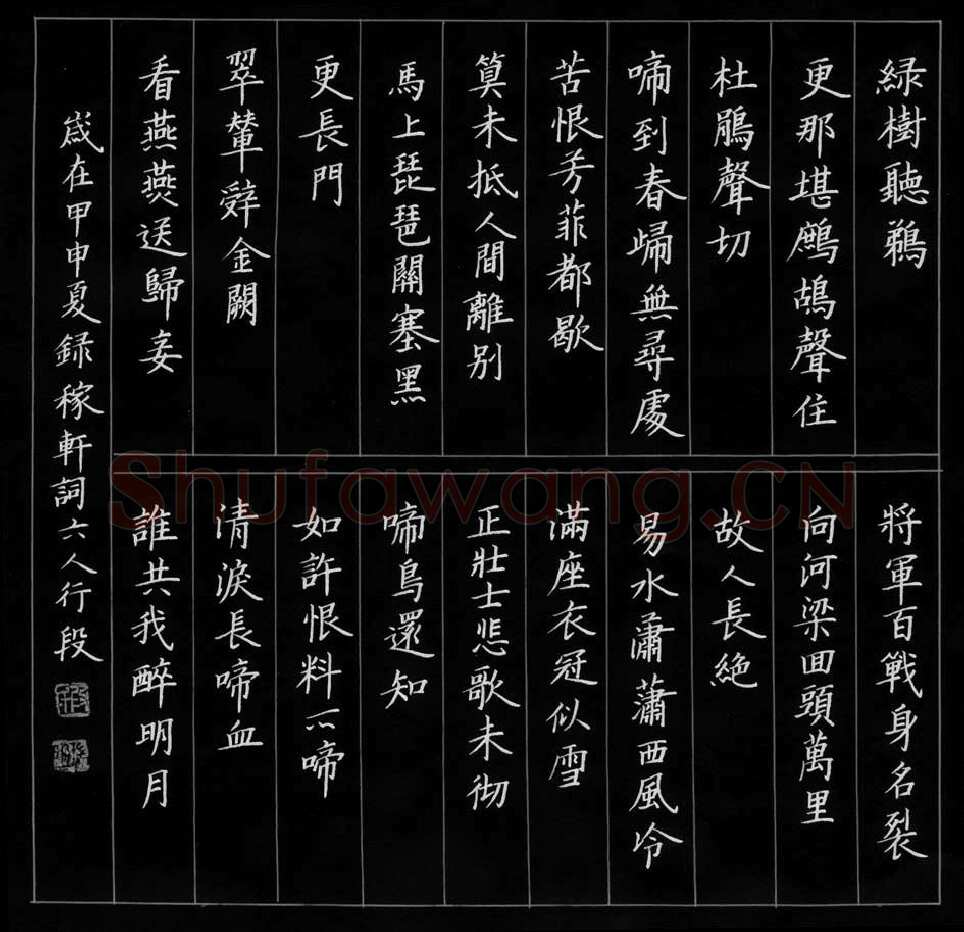 緑樹聽鵜
更那堪鷓鴣聲住
杜鵑聲切
啼到春歸無尋處
苦恨芳菲都歇
算未抵人間離别
馬上琵琶關塞黑
更長門
翠輦辭金闕
看燕燕送歸妾
將軍百戰身名裂
向河梁回頭萬里
故人長絶
易水蕭蕭西風冷
滿座衣冠似雪
正壯士悲歌未彻
啼鳥還知
如許恨料不啼
清淚長啼血
誰共我醉明月
歲在甲申夏録稼軒詞六人行段
Shufawang.CN